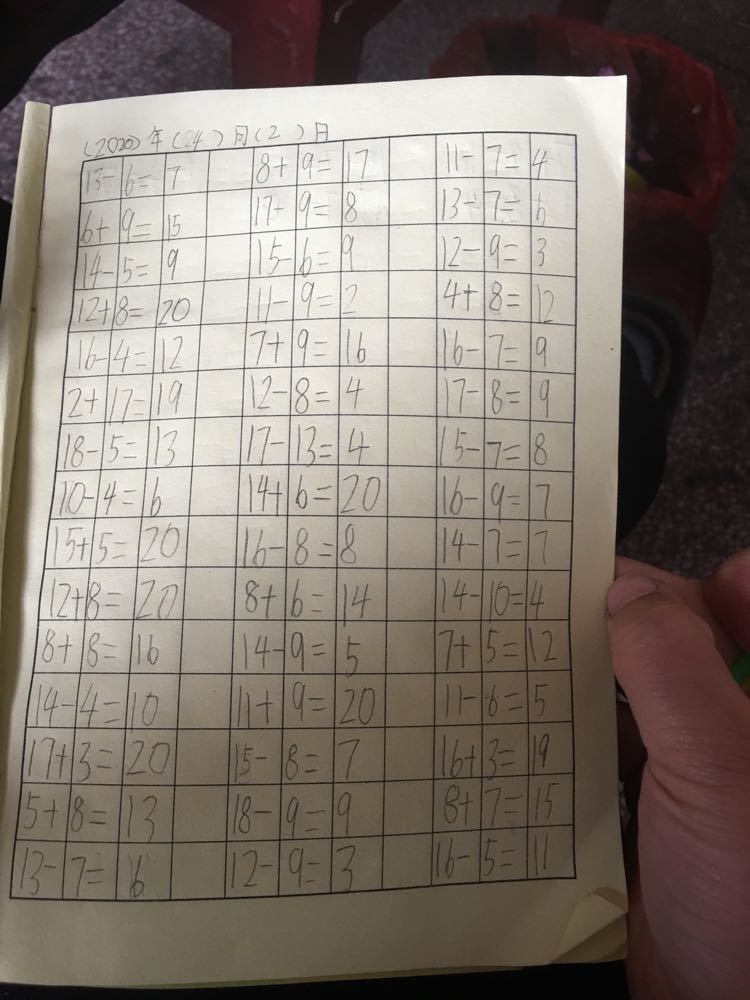 (2020)年(24)月(2)日
13-6=7 8+9=17 11-7=4
6+9=15 17-9=8 13-7=6
14-5=9 15-6=9 12-9=3
12+8=20 11-9=2 4+8=12
16-4=12 7+9=16 16-7=9
2+17=19 12-8=4 17-8=9
18-5=13 17-13=4 15-7=8
10-4=6 14+6=20 16-9=7
15+5=20 16-8=8 14-7=7
12+8=20 8+6=14 14-10=4
8+8=16 14-9=5 7+5=12
14-4=10 11+9=20 11-6=5
17+3=20 15-8=7 16+3=19
5+8=13 18-9=9 8+7=15
13-7=16 12-9=3 16-5=11